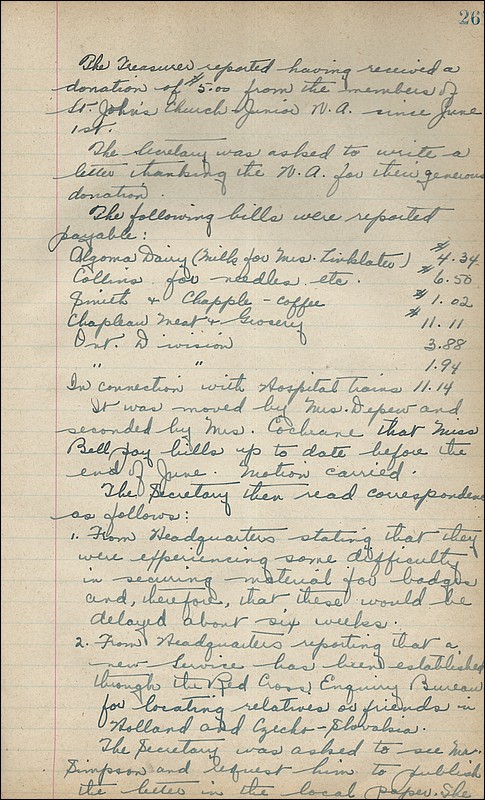 26
The Treasurer reported having received a
donation of $5.00 from the members of
St. John's Church Junior W.A. since June
1st.
The Secretary was asked to write a
letter thanking the W.A. for their generous
donation.
The following bills were reported
payable:
Algoma Dairy (Milk for Mrs. Linklater) $4.34
Collins for needles etc. $6.50
Smith & Chapple - coffee $1.02
Chapleau Meat & Grocery $11.11
Ont. Division 3.88
" " 1.94
In connection with Hospital trains 11.14
It was moved by Mrs. Depew and
seconded by Mrs. Cochrane that Miss
Bell pay bills up to date before the
end of June. Motion carried.
The Secretary then read corresponden
as follows:
1. From Headquarters stating that they
were experiencing some difficulty
in securing material for badges
and, therefore, that these would be
delayed about six weeks.
2. From Headquarters reporting that a
new Service has been established
through the Red Cross Enquiry Bureau
for locating relatives or friends in
Holland and Czecho-Slovakia.
The Secretary was asked to see Mr.
Simpson and request him to publish
the letter in the local paper. The